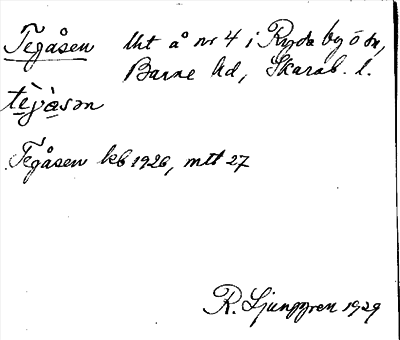 Tegåsen lht å nr 4 i Ryda by ö sn,
Barne hd, Skarab. l.
tègåsən
Tegåsen kb 1926, mtl 27
R. Ljunggren 1929